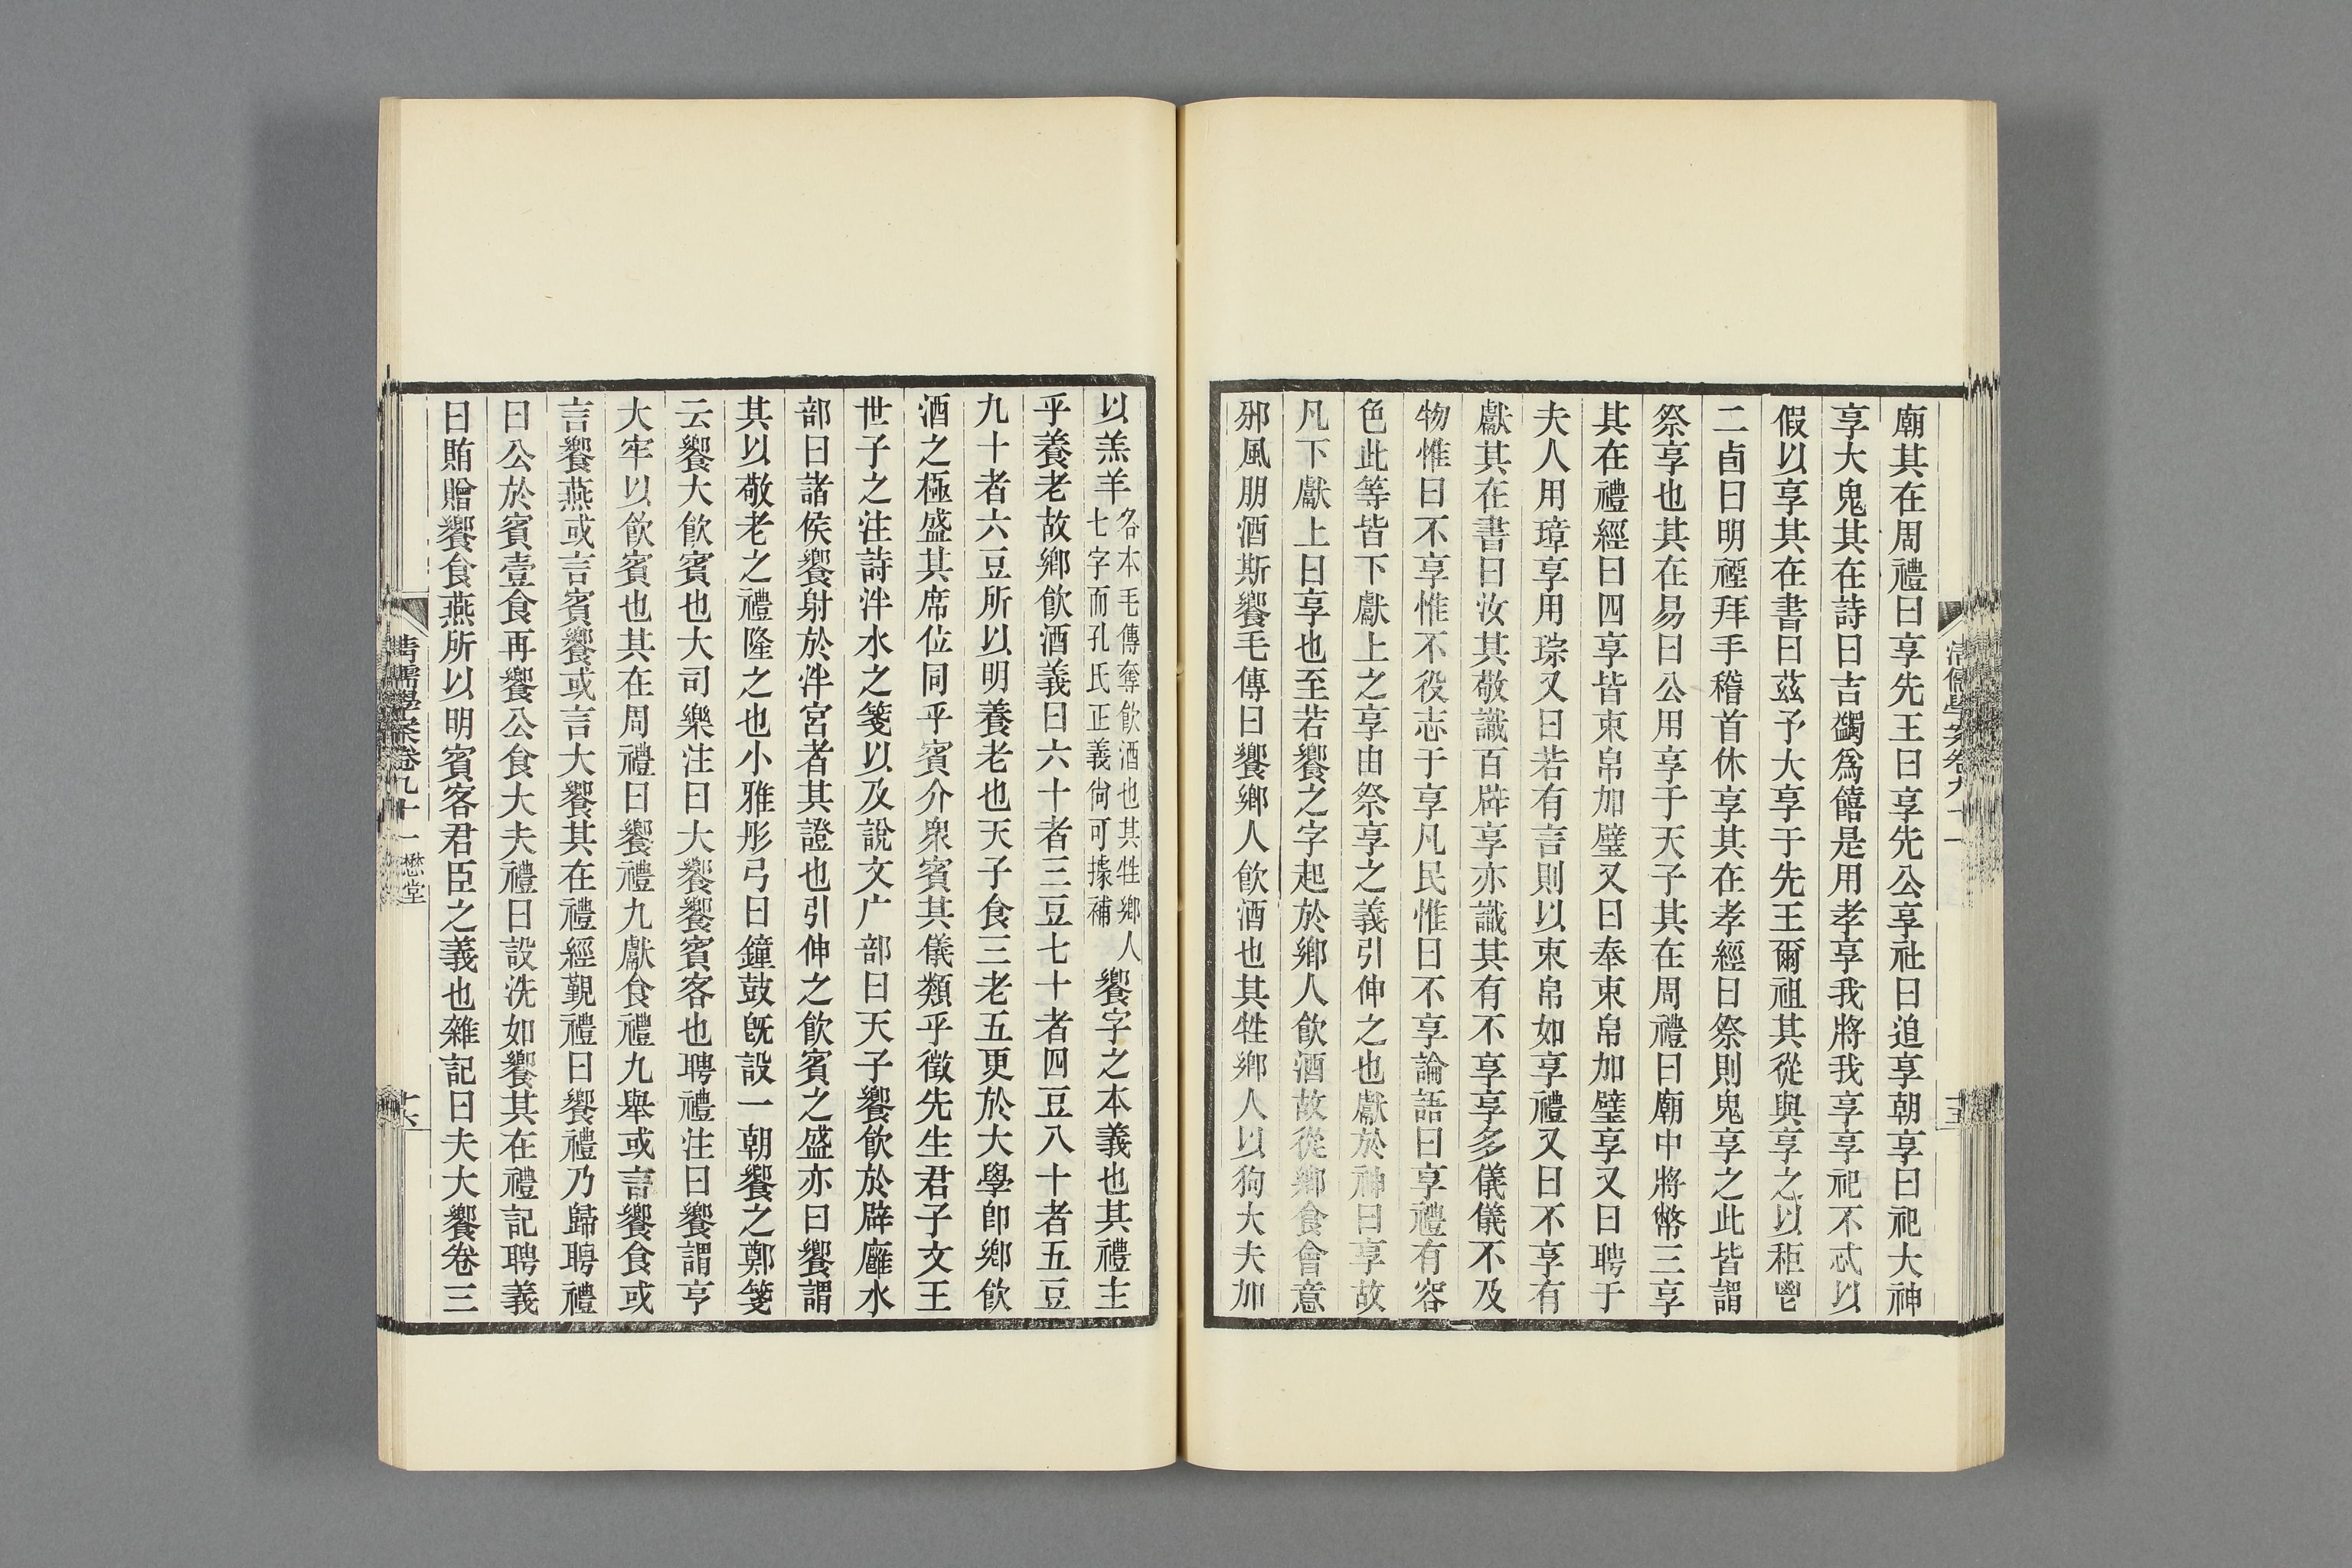 廟其在周禮曰享先王曰享先公享社曰追享朝享曰祀大神
享大鬼其在詩曰吉蠲爲饎是用孝享我將我享享祀不忒以
假以享其在書曰茲予大享于先王爾祖其從與享之以秬鬯
二卣曰明禋拜手稽首休享其在孝經曰祭則鬼享之此皆謂
祭享也其在易曰公用享于天子其在周禮曰廟中將幣三享
其在禮經曰四享皆束帛加璧又曰奉束帛加璧享又曰聘于
夫人用璋享用琮又曰若有言則以束帛如享禮又曰不享有
獻其在書曰汝其敬識百辟享亦識其有不享享多儀儀不及
物惟曰不享惟不役志于享凡民惟曰不享論語曰享禮有容
色此等皆下獻上之享由祭享之義引伸之也獻於神曰享故
凡下獻上曰享也至若饗之字起於鄉人飮酒故從鄉食會意
邠風朋酒斯饗毛傳曰饗鄉人飮酒也其牲鄉人以狗大夫加
清儒學案卷九十一
十五
以羔羊各本毛傳奪飮酒也其牲鄉人七字而孔氏正義尙可據補饗字之本義也其禮主
乎養老故鄉飮酒義曰六十者三豆七十者四豆八十者五豆
九十者六豆所以明養老也天子食三老五更於大學卽鄉飮
酒之極盛其席位同乎賓介衆賓其儀類乎徵先生君子文王
世子之注詩泮水之箋以及說文广部曰天子饗飮於辟廱水
部曰諸侯饗射於泮宮者其證也引伸之飮賓之盛亦曰饗謂
其以敬老之禮隆之也小雅彤弓曰鐘鼓旣設一朝饗之鄭箋
云饗大飮賓也大司樂注曰大饗饗賓客也聘禮注曰饗謂亨
大牢以飮賓也其在周禮曰饗禮九獻食禮九舉或言饗食或
言饗燕或言賓饗或言大饗其在禮經覲禮曰饗禮乃歸聘禮
曰公於賓壹食再饗公食大夫禮曰設洗如饗其在禮記聘義
曰賄贈饗食燕所以明賓客君臣之義也雜記曰夫大饗卷三
清儒學案卷九十一 懋堂
十六